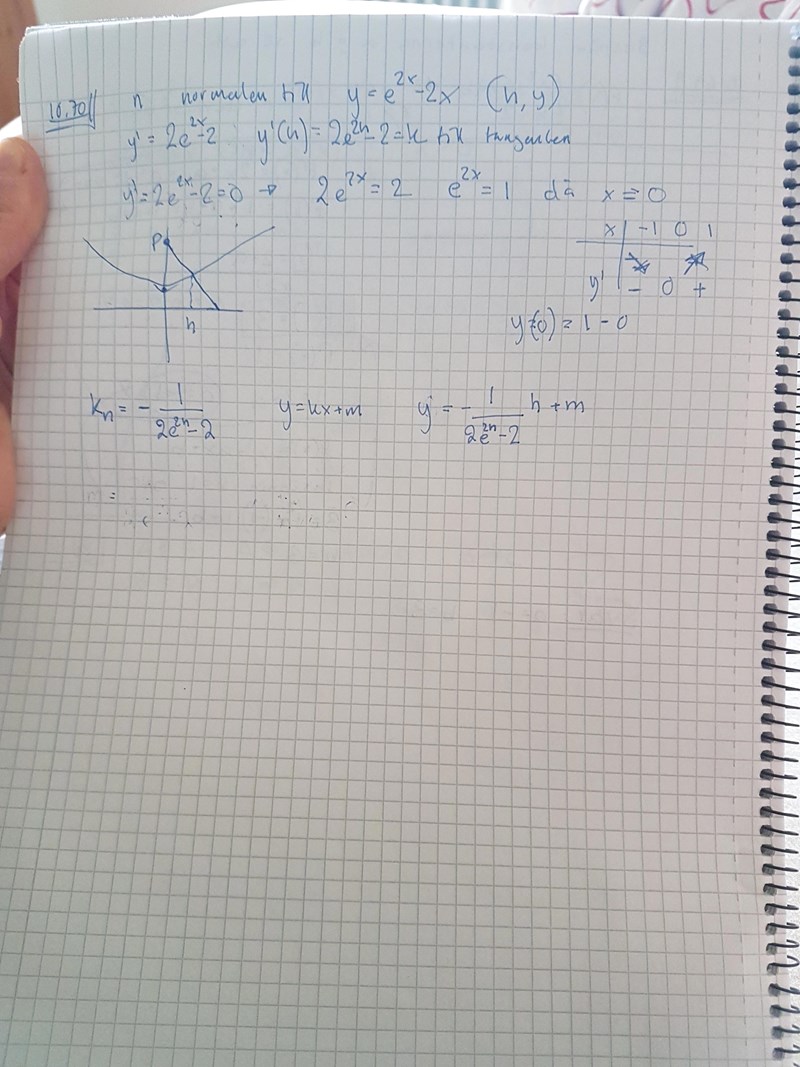 16.70 n normalen till y = e^2x - 2x (h, y)
y' = 2e^2x - 2 y'(h) = 2e^2h - 2 = k till tangenten
y' = 2e^2x - 2 = 0 → 2e^2x = 2 e^2x = 1 då x = 0
x | -1 0 1
y' | - 0 +
P
h
y(0) = 1 - 0
kn = - 1/(2e^2h - 2) y = kx + m y = - 1/(2e^2h - 2) h + m